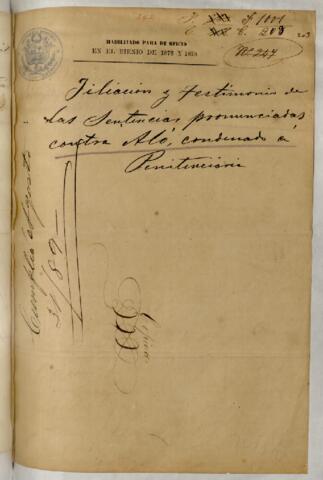 HABILITADO PARA DE OFICIO
EN EL BIENIO DE 1878 Y 1879
Nº 247
203
Filiacion y testimonio de
las Sentencias pronunciadas
contra Aló, condenado á
Penitenciaria
Cumplió el Agosto
31/89